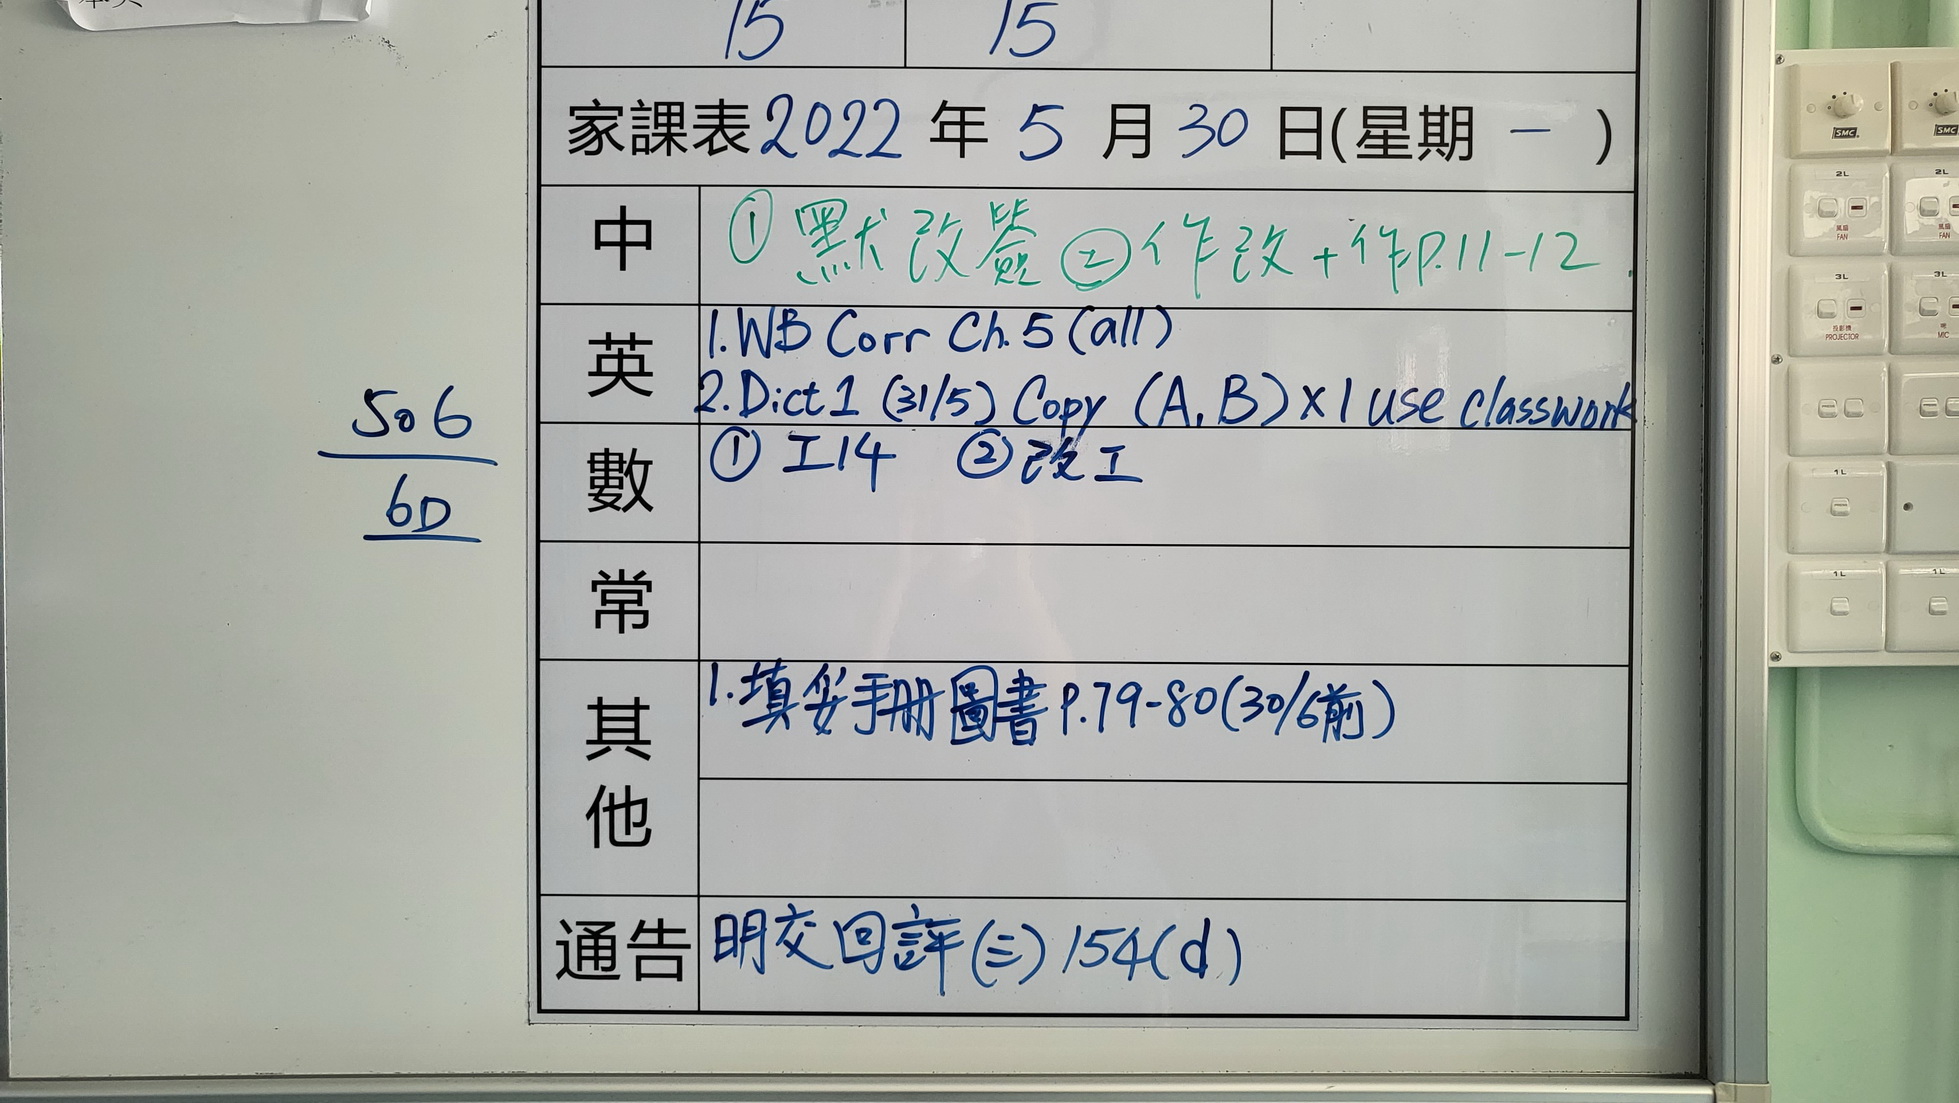 15 15
家課表2022年5月30日(星期一)
中 ①默改簽②作改+作P.11-12.
英 1.WB Corr Ch.5 (all)
2.Dict 1 (31/5) Copy (A,B)×1 use classwork
數 ①工14 ②改工
常
其他 1.填妥手册圖書P.79-80(30/6前)
通告 明交回評(三)154(d)
506
6D
SMC SMC
2L 2L
風扇 風扇
FAN FAN
3L 3L
投影機
PROJECTOR MIC
1L
1L 1L